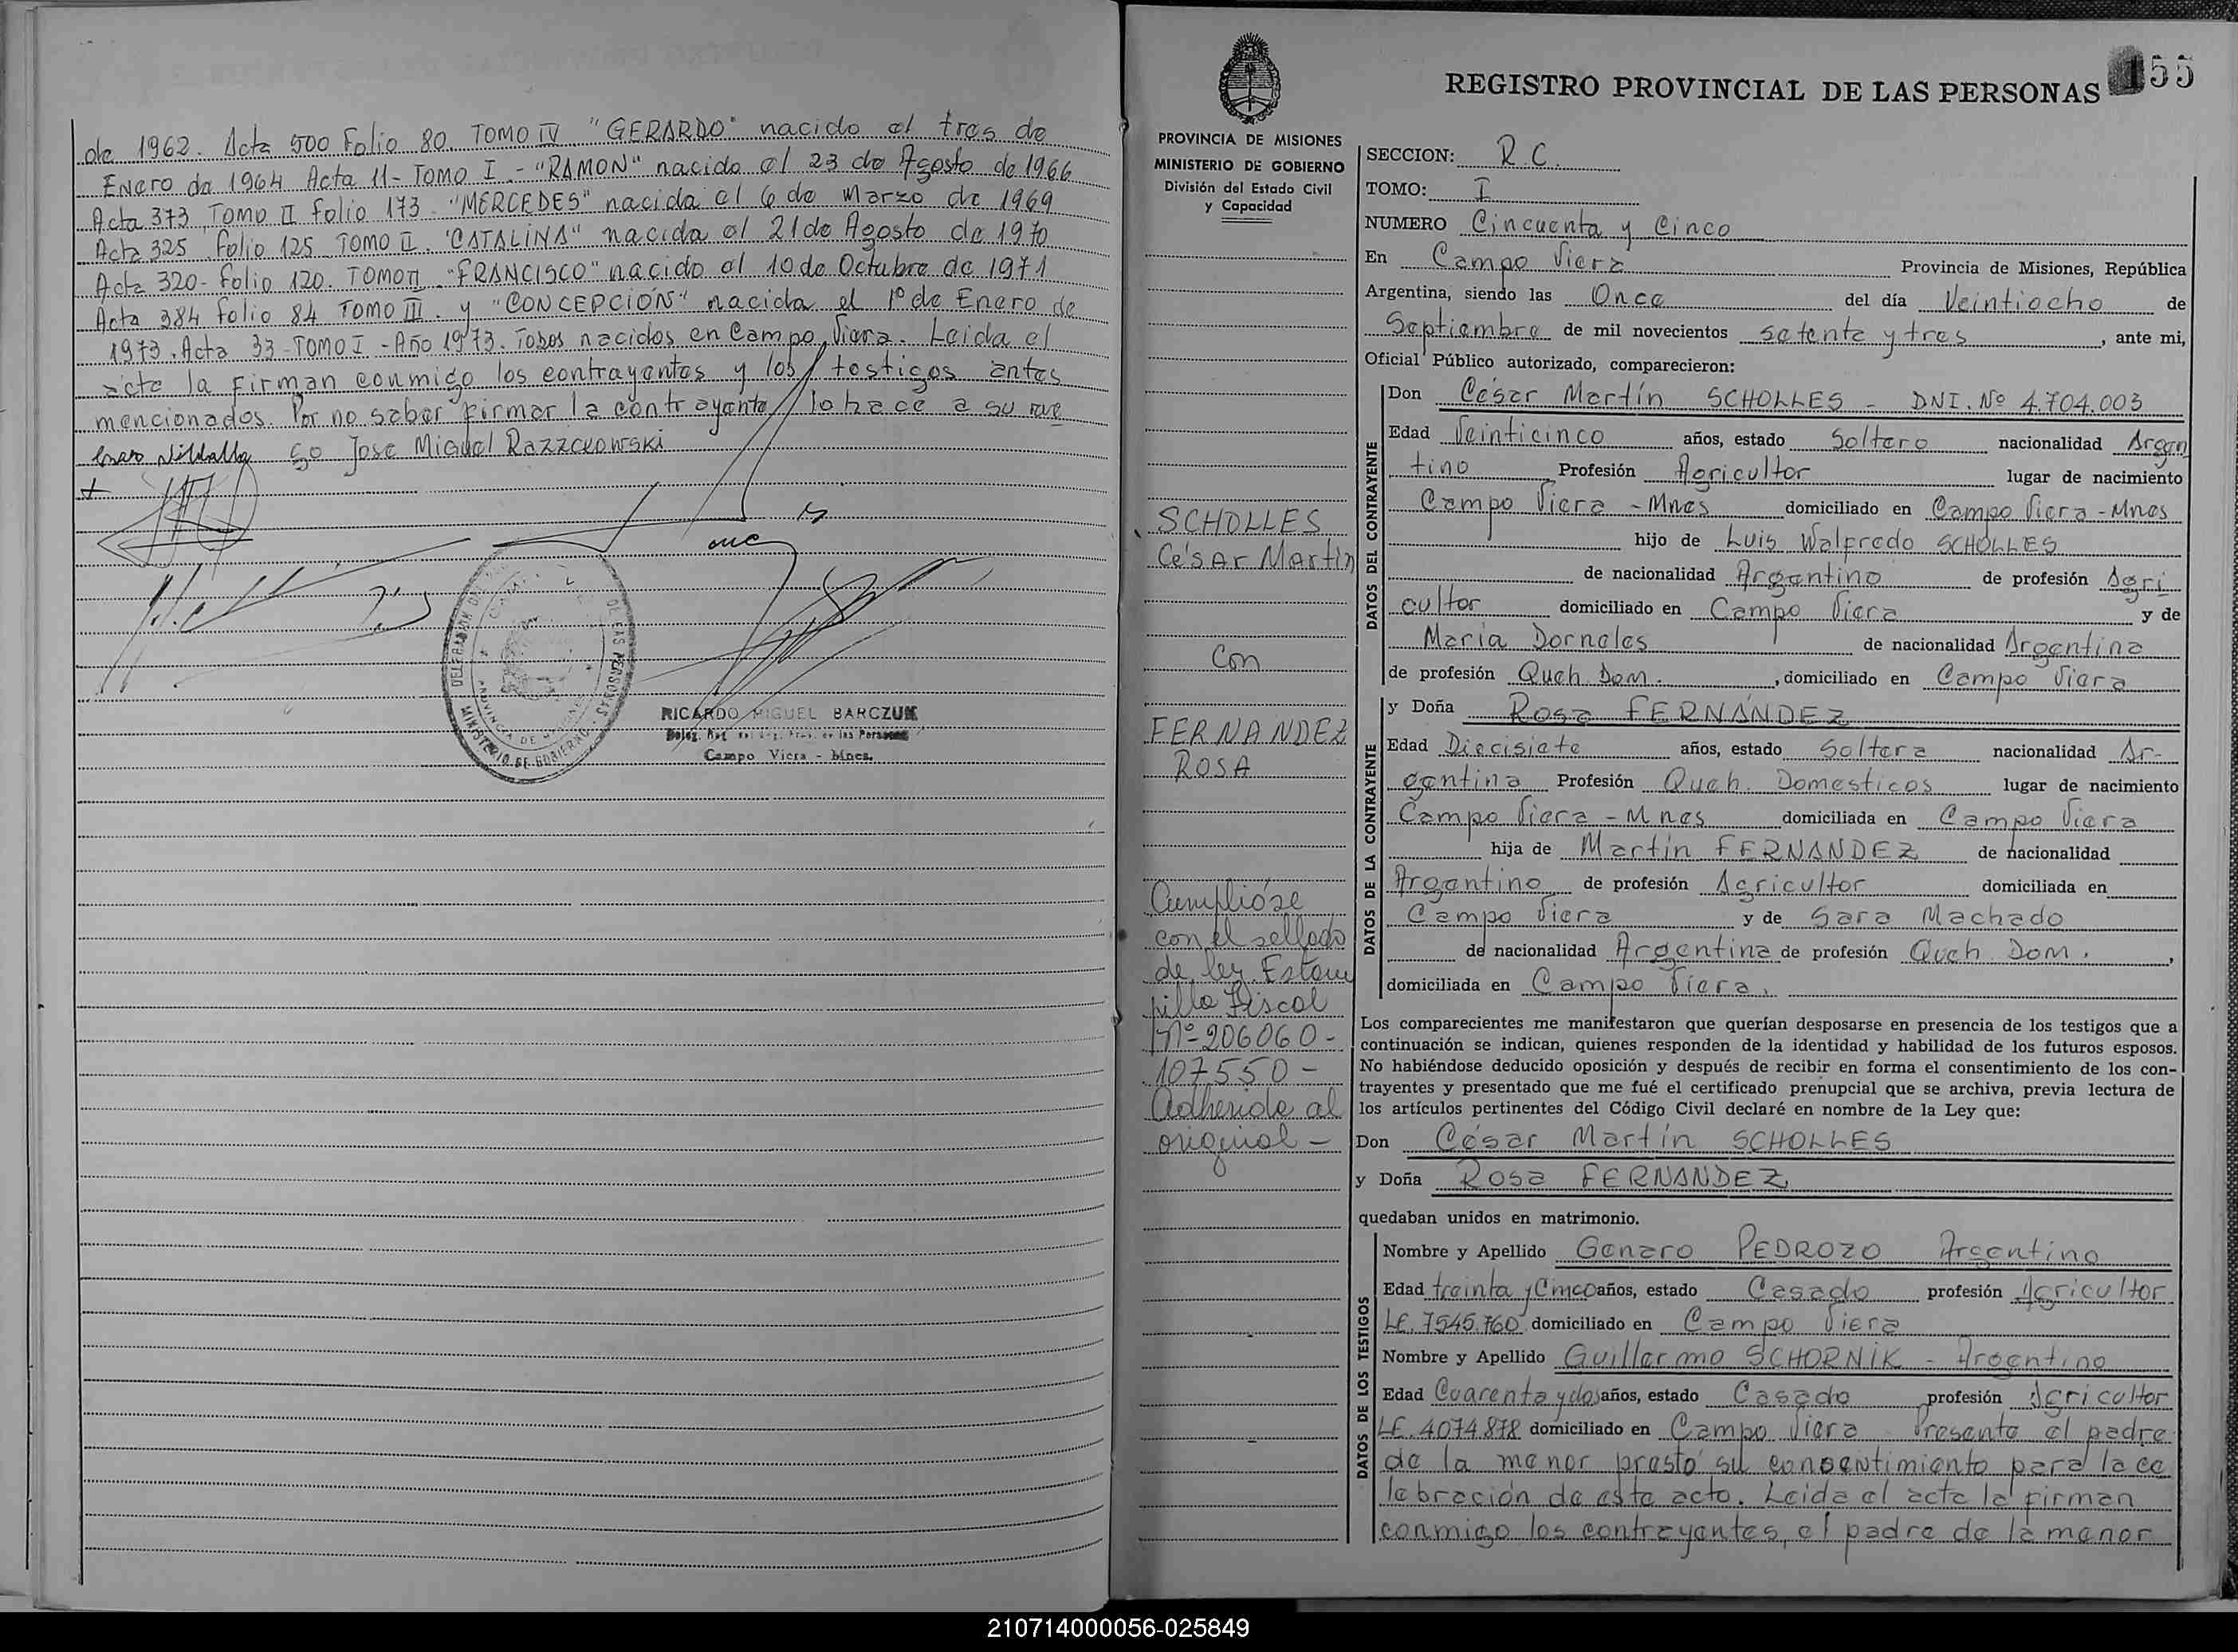 de 1962. Acta 500 Folio 80. TOMO IV "GERARDO" nacido el tres de
Enero de 1964 Acta 11 - TOMO I - "RAMON" nacido el 23 de Agosto de 1966
Acta 373, TOMO II folio 173. "MERCEDES" nacida el 6 de Marzo de 1969
Acta 325 folio 125 TOMO II. "CATALINA" nacida el 21 de Agosto de 1970
Acta 320 - folio 120. TOMO II "FRANCISCO" nacido el 10 de Octubre de 1971
Acta 384 folio 84 TOMO III. y "CONCEPCIÓN" nacida el 1º de Enero de
1973. Acta 33 - TOMO I - Año 1973. Todos nacidos en Campo Viera. Leida el
acta la firman conmigo los contrayentes y los testigos antes
mencionados. Por no saber firmar la contrayente lo hace a su rue
go José Miguel Razzckowski
MINISTERIO DE GOBIERNO
DE LAS PERSONAS
RICARDO MIGUEL BARCZUK
Campo Viera - Mnes.
155
REGISTRO PROVINCIAL DE LAS PERSONAS
PROVINCIA DE MISIONES
MINISTERIO DE GOBIERNO
División del Estado Civil
y Capacidad
SCHOLLES
César Martin
Con
FERNANDEZ
ROSA
Cumplióse
con el sellado
de ley Estam
pilla Fiscal
Nº 206060 -
107550 -
Adherida al
original -
SECCION: R.C.
TOMO: I
NUMERO Cincuenta y Cinco
En Campo Viera Provincia de Misiones, República
Argentina, siendo las Once del día Veintiocho de
Septiembre de mil novecientos setenta y tres, ante mi,
Oficial Público autorizado, comparecieron:
DATOS DEL CONTRAYENTE
Don César Martín SCHOLLES - DNI. Nº 4.704.003
Edad Veinticinco años, estado Soltero nacionalidad Argen
tino Profesión Agricultor lugar de nacimiento
Campo Viera - Mnes domiciliado en Campo Viera - Mnes
hijo de Luis Walfredo SCHOLLES
de nacionalidad Argentino de profesión Agri
cultor domiciliado en Campo Viera y de
María Dorneles de nacionalidad Argentina
de profesión Queh. Dom., domiciliado en Campo Viera
DATOS DE LA CONTRAYENTE
y Doña Rosa FERNÁNDEZ
Edad Diecisiete años, estado Soltera nacionalidad Ar-
gentina Profesión Queh. Domesticos lugar de nacimiento
Campo Viera - Mnes domiciliada en Campo Viera
hija de Martín FERNANDEZ de nacionalidad
Argentino de profesión Agricultor domiciliada en
Campo Viera y de Sara Machado
de nacionalidad Argentina de profesión Queh. Dom.,
domiciliada en Campo Viera.
Los comparecientes me manifestaron que querían desposarse en presencia de los testigos que a
continuación se indican, quienes responden de la identidad y habilidad de los futuros esposos.
No habiéndose deducido oposición y después de recibir en forma el consentimiento de los con-
trayentes y presentado que me fué el certificado prenupcial que se archiva, previa lectura de
los artículos pertinentes del Código Civil declaré en nombre de la Ley que:
Don César Martín SCHOLLES
y Doña Rosa FERNANDEZ
quedaban unidos en matrimonio.
DATOS DE LOS TESTIGOS
Nombre y Apellido Genaro PEDROZO Argentino
Edad treinta y Cinco años, estado Casado profesión Agricultor
LE. 7545.760 domiciliado en Campo Viera
Nombre y Apellido Guillermo SCHORNIK - Argentino
Edad Cuarenta y dos años, estado Casado profesión Agricultor
LE. 4074.878 domiciliado en Campo Viera Presente el padre
de la menor prestó su consentimiento para la ce
lebración de este acto. Leida el acta la firman
conmigo los contrayentes, el padre de la menor
210714000056-025849